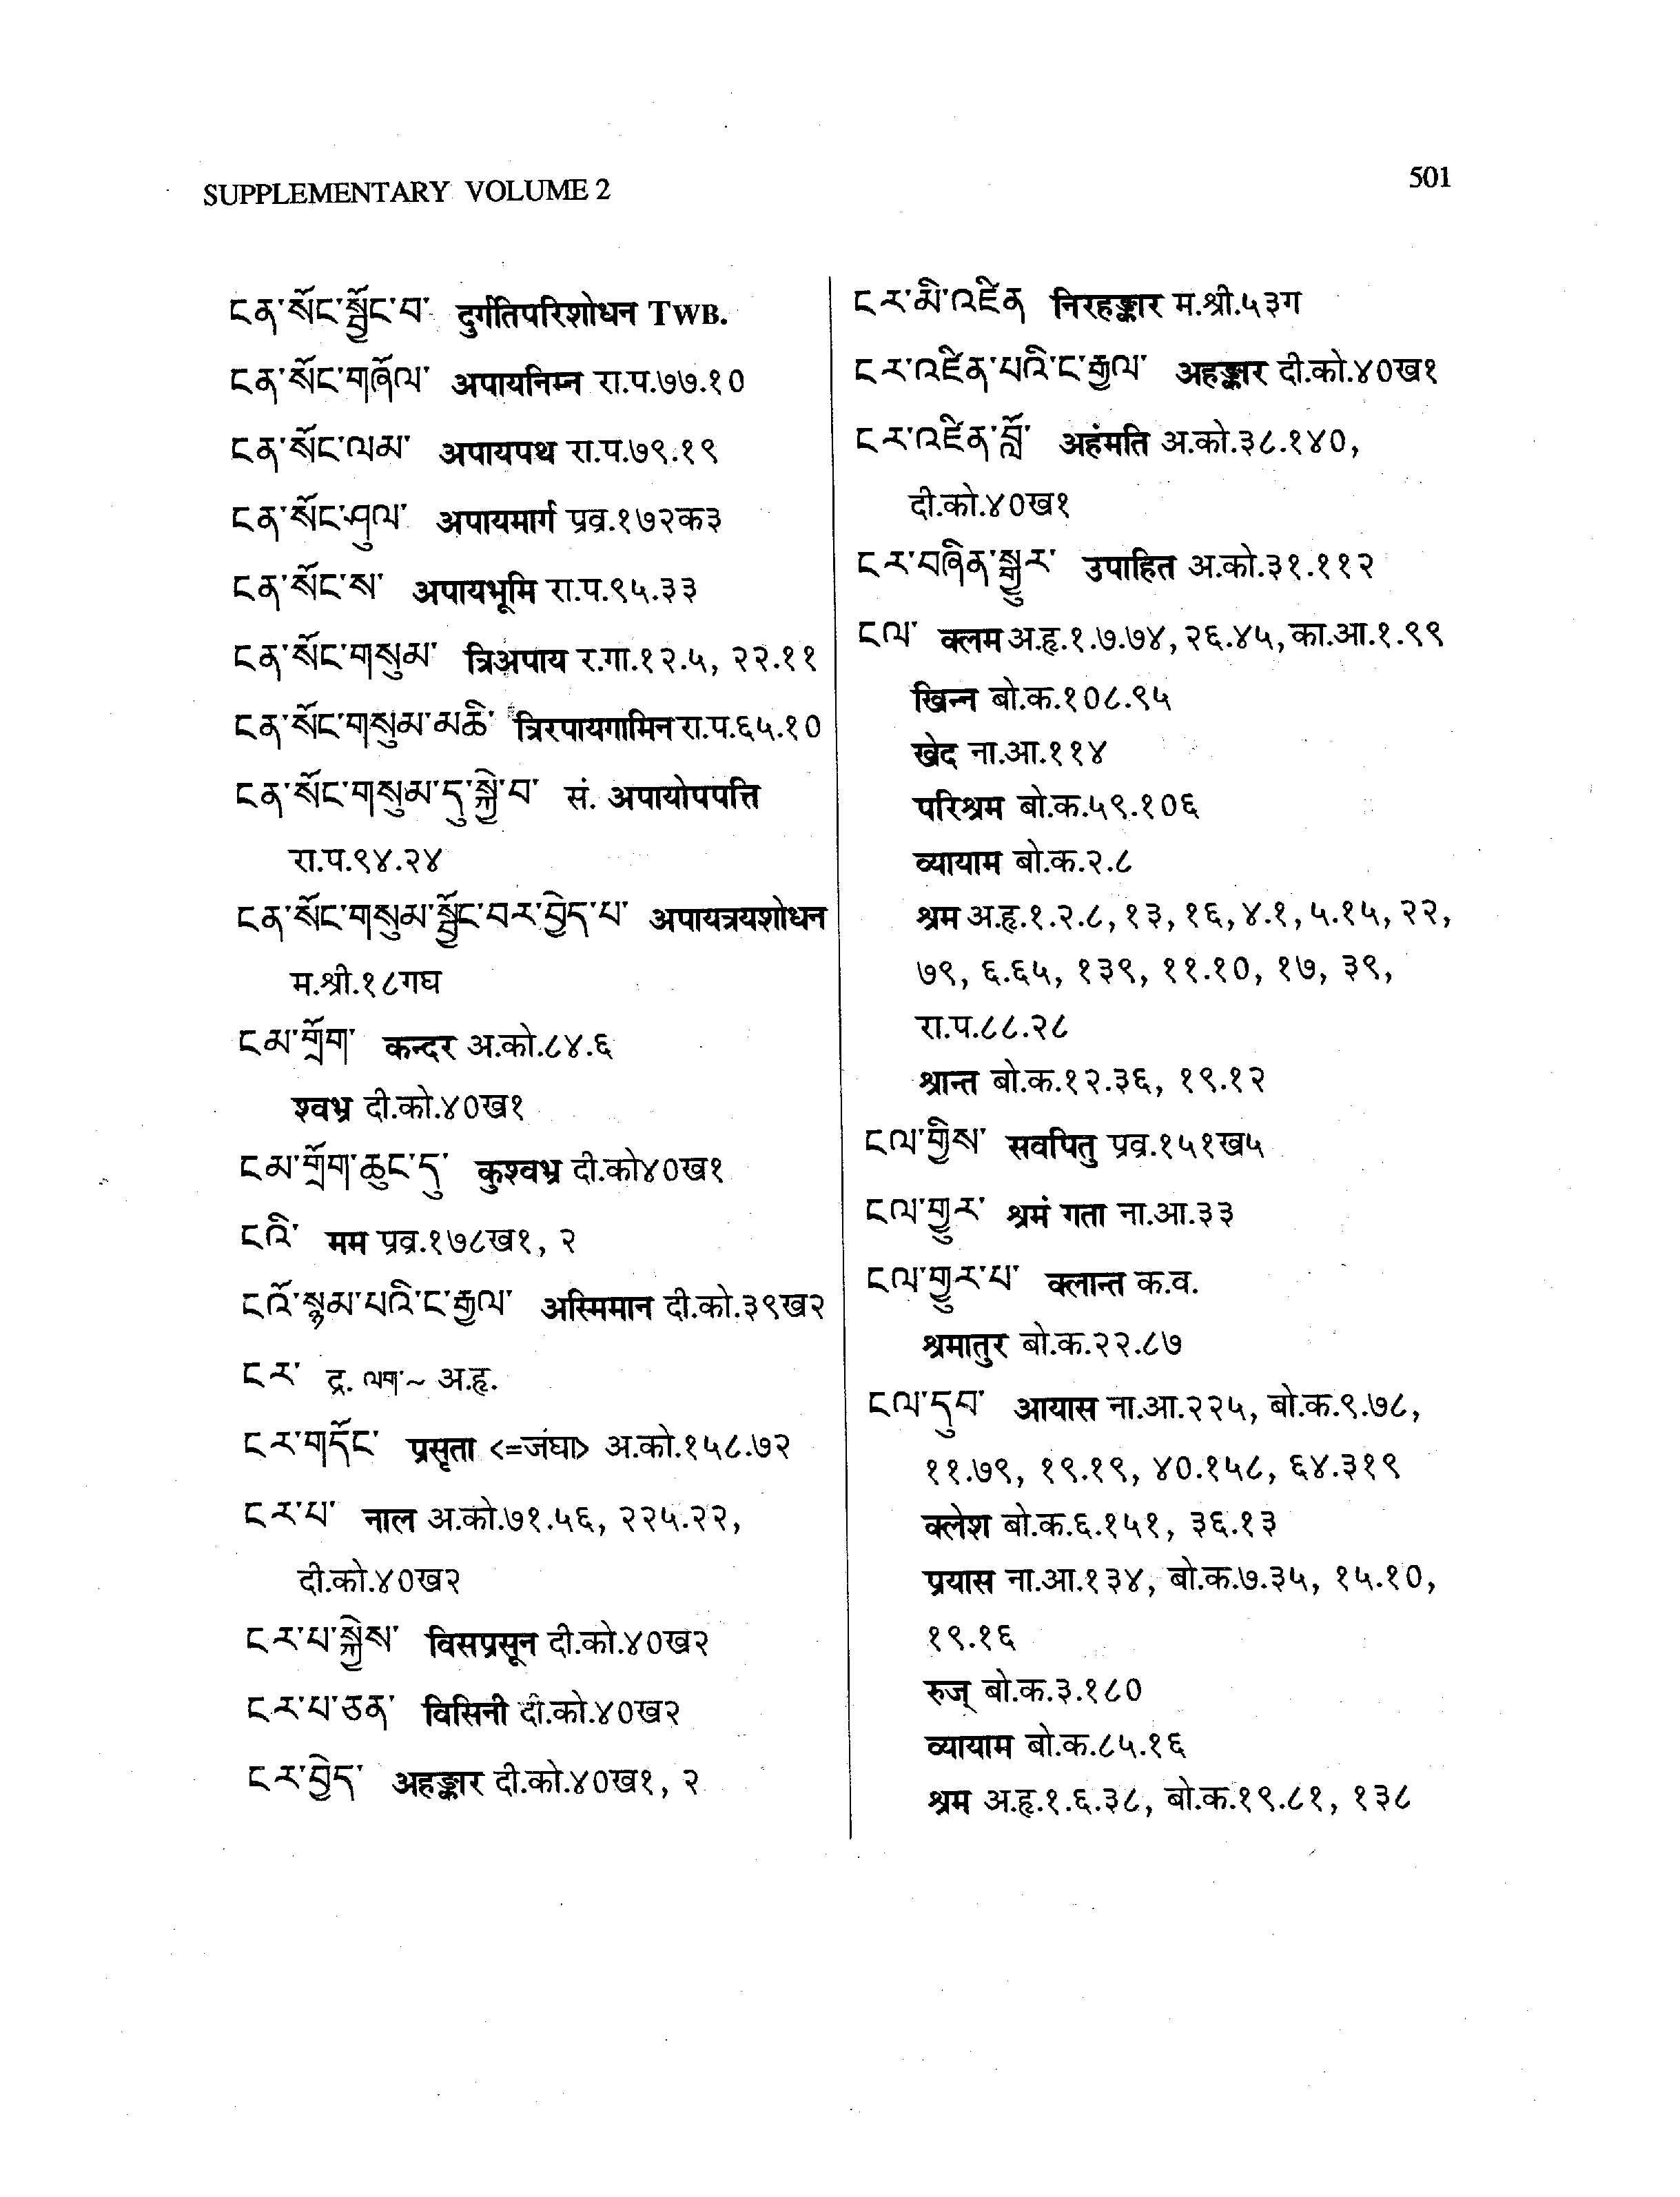 SUPPLEMENTARY VOLUME 2
501
ངན་སོང་སྦྱོང་བ་ दुर्गतिपरिशोधन TWB.
ངན་སོང་གཞོལ་ अपायनिम्न रा.प.७७.१०
ངན་སོང་ལམ་ अपायपथ रा.प.७९.१९
ངན་སོང་ཤུལ་ अपायमार्ग प्रव्र.१७२क३
ངན་སོང་ས་ अपायभूमि रा.प.९५.३३
ངན་སོང་གསུམ་ त्रिअपाय र.गा.१२.५, २२.११
ངན་སོང་གསུམ་མཆི་ त्रिरपायगामिन रा.प.६५.१०
ངན་སོང་གསུམ་དུ་སྐྱེ་བ་ सं. अपायोपपत्ति
रा.प.९४.२४
ངན་སོང་གསུམ་སྦྱོང་བར་བྱེད་པ་ अपायत्रयशोधन
म.श्री.१८गघ
ངམ་གྲོག་ कन्दर अ.को.८४.६
श्वभ्र दी.को.४०ख१
ངམ་གྲོག་ཆུང་དུ་ कुश्वभ्र दी.को४०ख१
ངའི་ मम प्रव्र.१७८ख१, २
ངའོ་སྙམ་པའི་ང་རྒྱལ་ अस्मिमान दी.को.३९ख२
ངར་ द्र. ལག་~ अ.हृ.
ངར་གདོང་ प्रसृता <=जंघा> अ.को.१५८.७२
ངར་པ་ नाल अ.को.७१.५६, २२५.२२,
दी.को.४०ख२
ངར་པ་སྐྱེས་ विसप्रसून दी.को.४०ख२
ངར་པ་ཅན་ विसिनी दी.को.४०ख२
ངར་བྱེད་ अहङ्कार दी.को.४०ख१, २
ངར་མི་འཛིན निरहङ्कार म.श्री.५३ग
ངར་འཛིན་པའི་ང་རྒྱལ་ अहङ्कार दी.को.४०ख१
ངར་འཛིན་བློ་ अहंमति अ.को.३८.१४०,
दी.को.४०ख१
ངར་བཞིན་སྒྱུར་ उपाहित अ.को.३१.११२
ངལ་ क्लम अ.हृ.१.७.७४, २६.४५, का.आ.१.९९
खिन्न बो.क.१०८.९५
खेद ना.आ.११४
परिश्रम बो.क.५९.१०६
व्यायाम बो.क.२.८
श्रम अ.हृ.१.२.८, १३, १६, ४.१, ५.१५, २२,
७९, ६.६५, १३९, ११.१०, १७, ३९,
रा.प.८८.२८
श्रान्त बो.क.१२.३६, १९.१२
ངལ་གྱིས་ सवपितु प्रव्र.१५१ख५
ངལ་གྱུར་ श्रमं गता ना.आ.३३
ངལ་གྱུར་པ་ क्लान्त क.व.
श्रमातुर बो.क.२२.८७
ངལ་དུབ་ आयास ना.आ.२२५, बो.क.९.७८,
११.७९, १९.१९, ४०.१५८, ६४.३१९
क्लेश बो.क.६.१५१, ३६.१३
प्रयास ना.आ.१३४, बो.क.७.३५, १५.१०,
१९.१६
रुज् बो.क.३.१८०
व्यायाम बो.क.८५.१६
श्रम अ.हृ.१.६.३८, बो.क.१९.८१, १३८